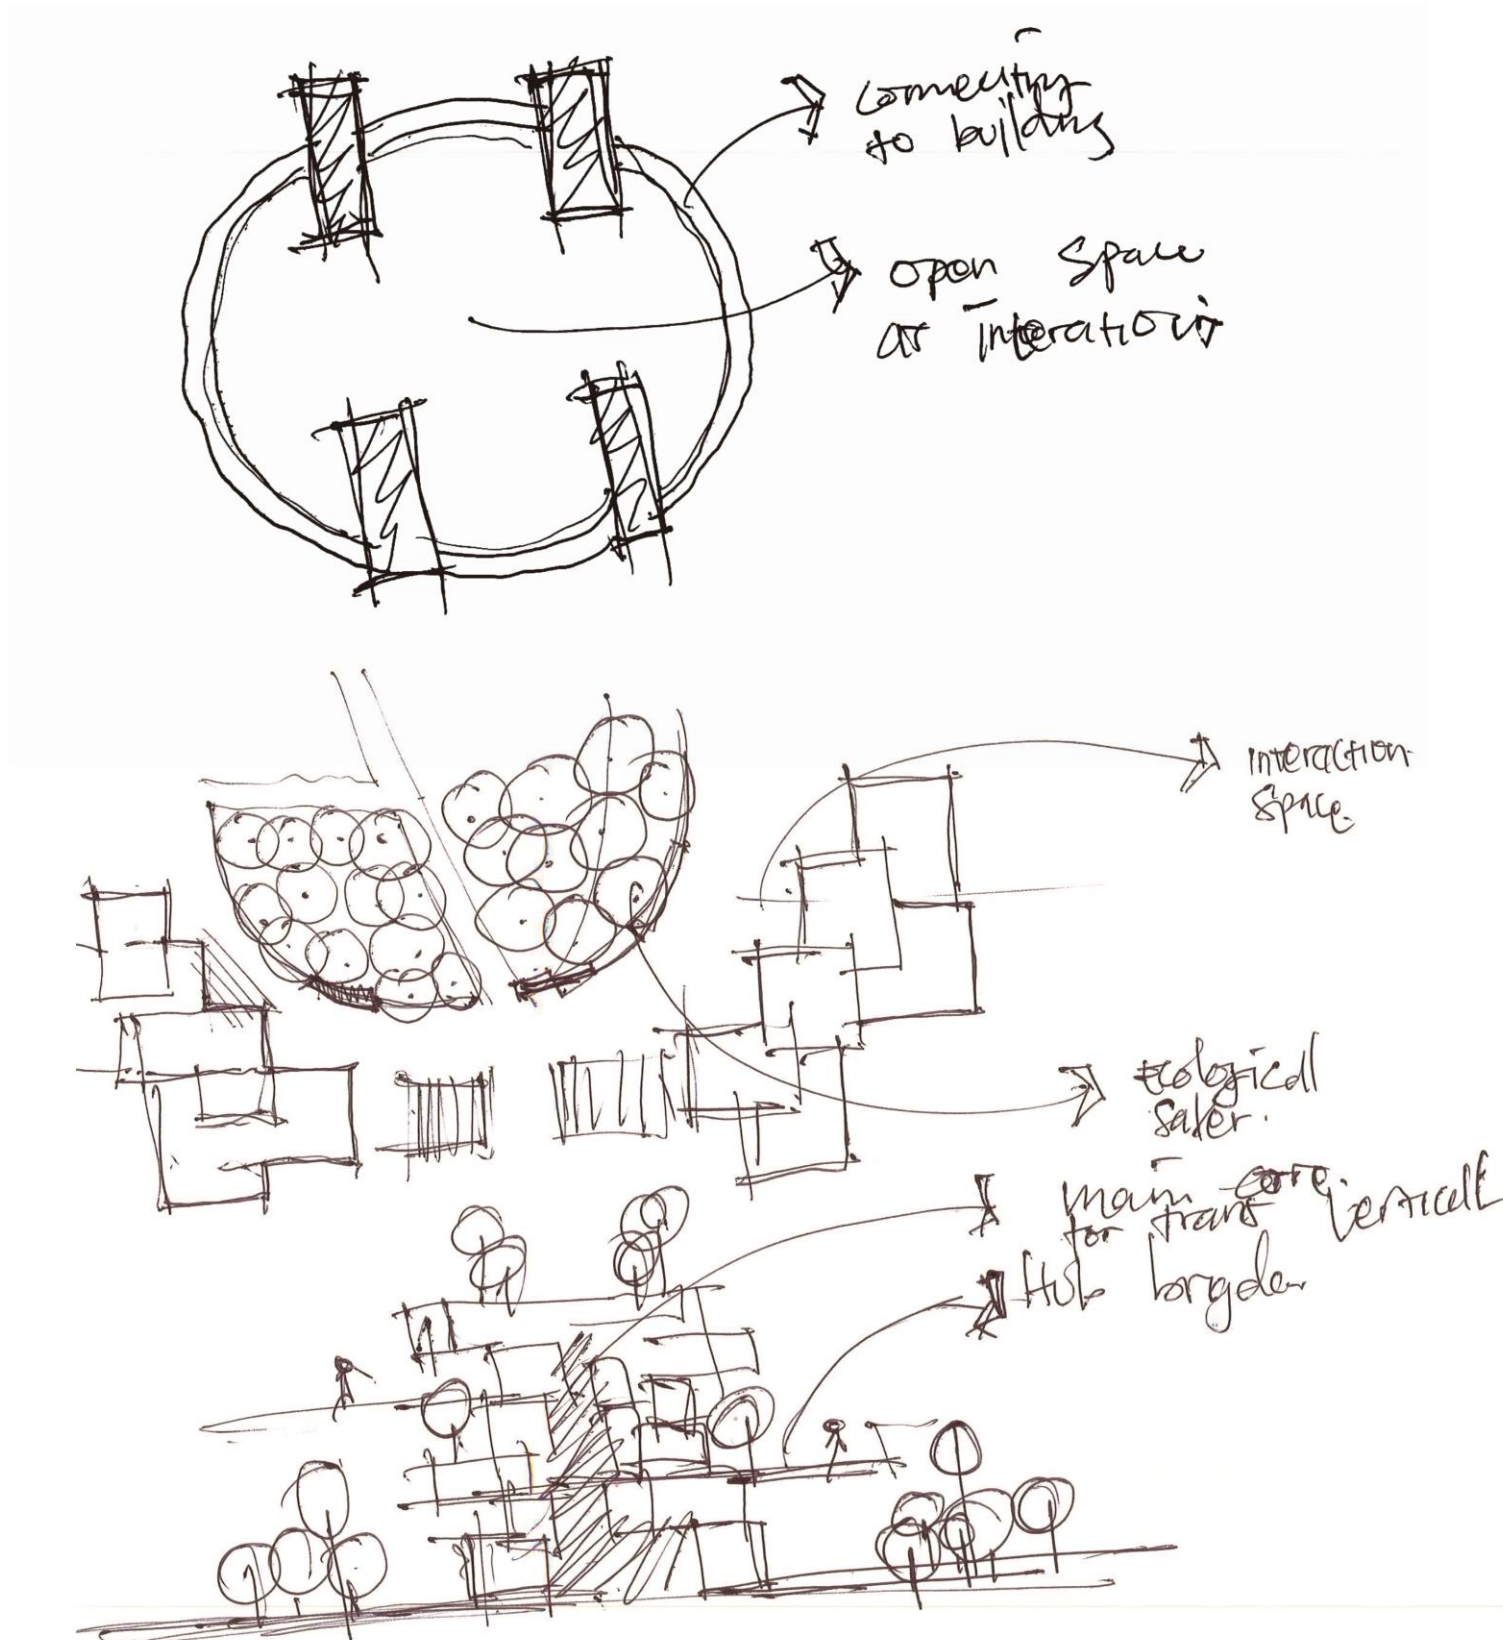 connecting
to building
open space
as interations
interaction
space
Ecologicall
main core
for trans verticall
Hub